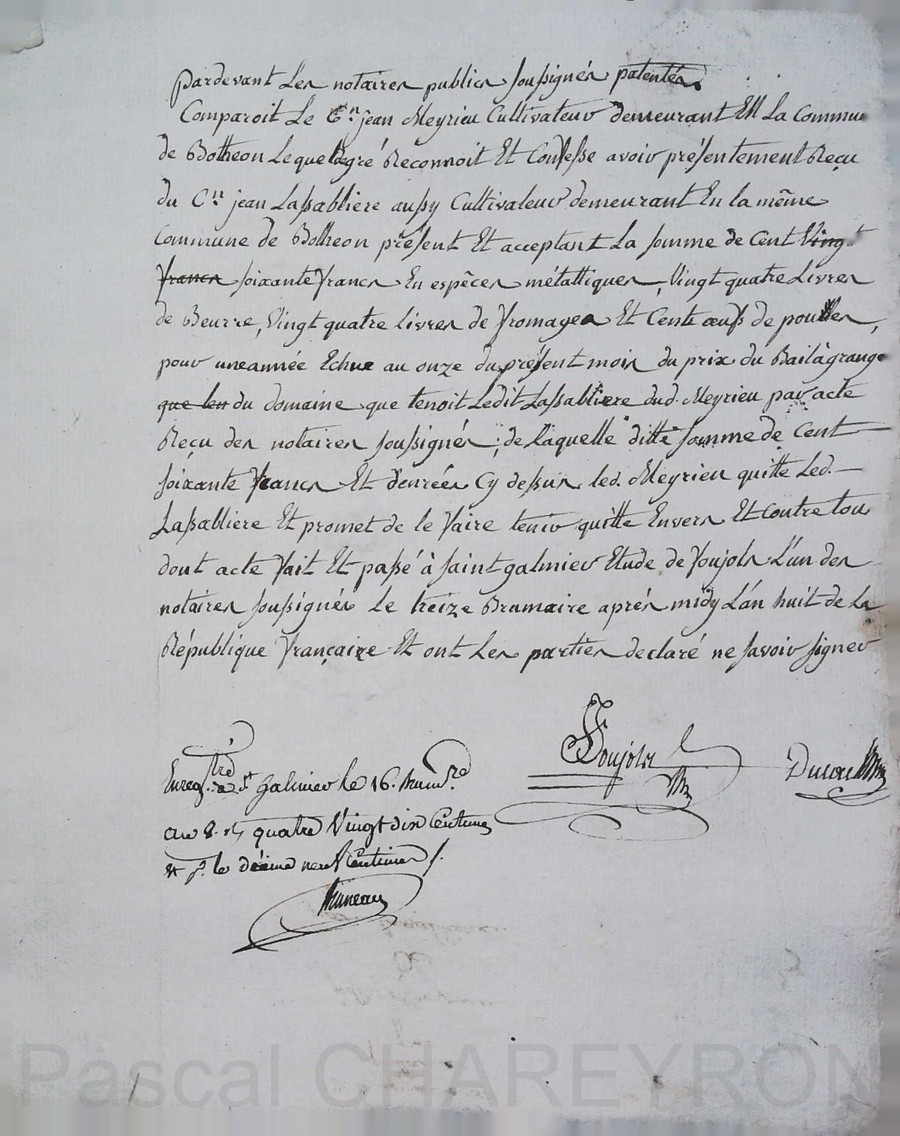 Pardevant Les notaires publics soussignés patentés
Comparoit Le C.en jean Meyrieu Cultivateur demeurant En La Commune
de Botheon Lequel degré Reconnoit Et Confesse avoir présentement Reçu
du C.en jean Lassabliere aussy Cultivateur demeurant En la même
Commune de Botheon présent Et acceptant La somme de Cent Vingt
francs soixante francs En espèces métalliques, Vingt quatre Livres
de Beurre, Vingt quatre Livres de fromages Et Cent œufs de poulles,
pour une année Echue au onze du présent mois du prix du Bail à grange
que les du domaine que tenoit Ledit Lassabliere dud. Meyrieu par acte
Reçu des notaires soussignés, de laquelle ditte somme de Cent
soixante francs Et denrées Cy dessus led. Meyrieu quitte Led.
Lassabliere Et promet de le faire tenir quitte Envers Et Contre tou
dont acte fait Et passé à saint galmier Etude de foujols L'un des
notaires soussignés Le treize Brumaire aprés midy L'an huit de La
République française Et ont Les parties declaré ne savoir signer
foujols
Enreg.tré a St galmier le 16. brum.
an 8. quatre Vingt dix Centimes
le décime neuf Centimes
Pascal CHAREYRON